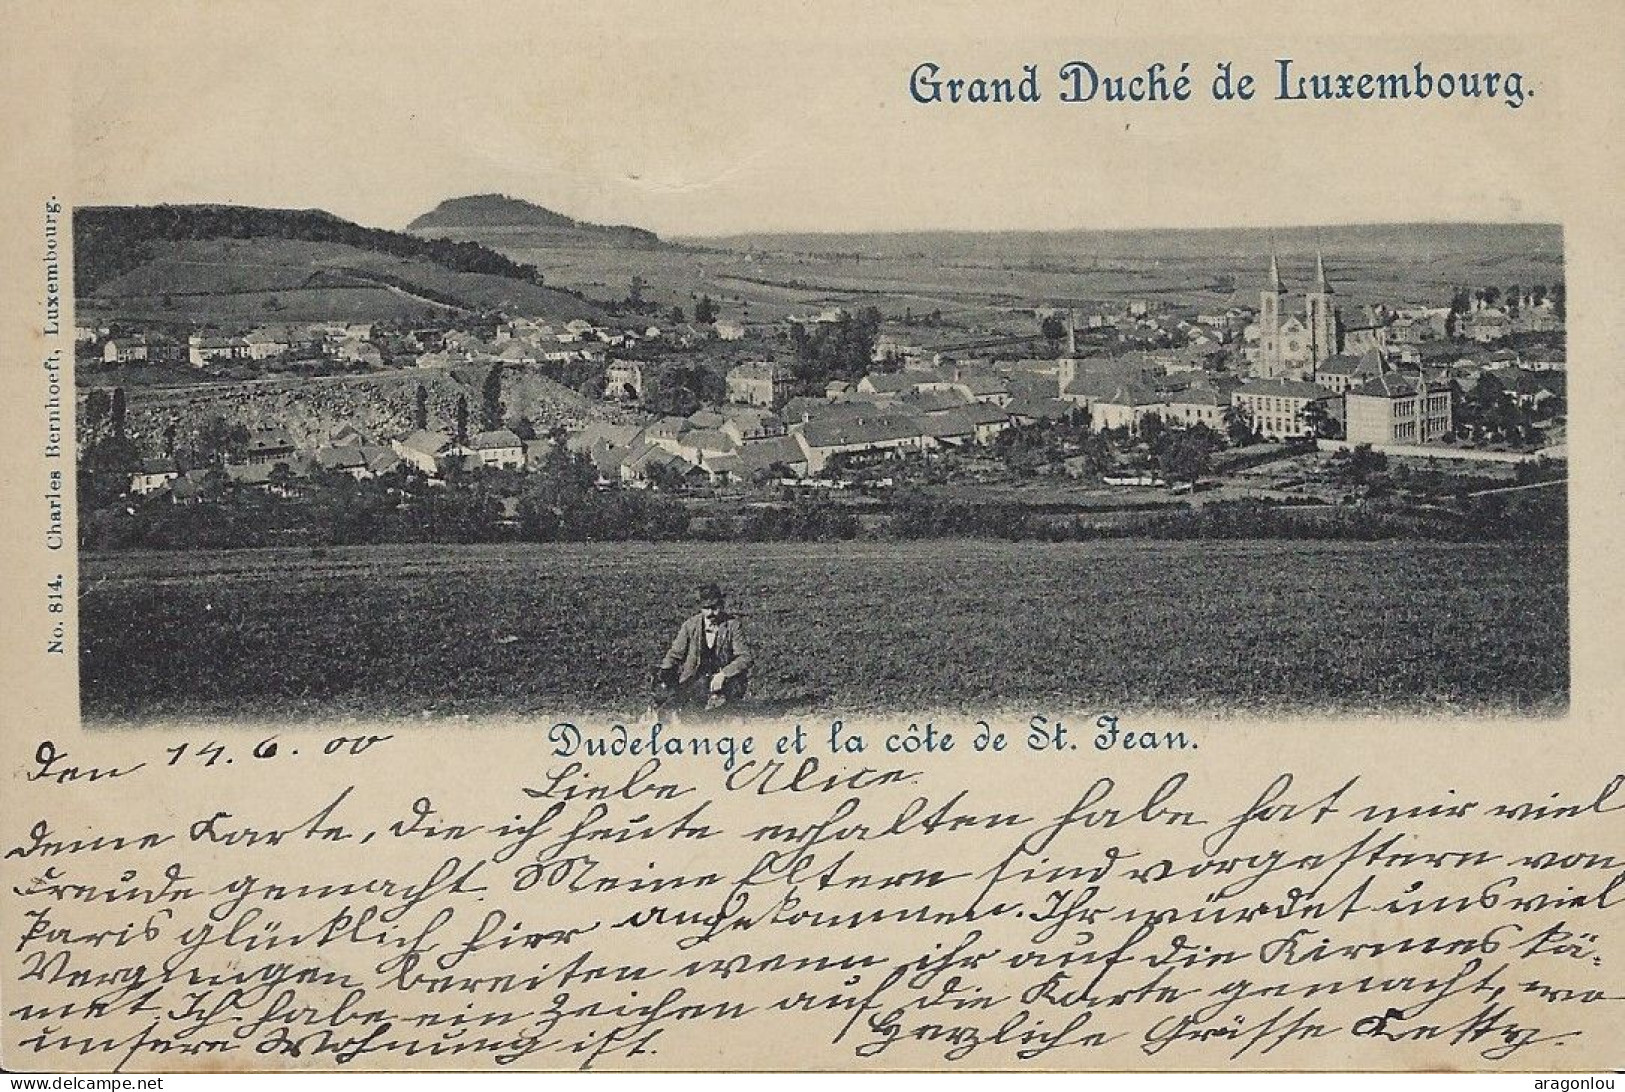 Grand Duché de Luxembourg.
No. 814. Charles Bernhoeft, Luxembourg.
Dudelange et la côte de St. Jean.
Den 14. 6. 00
Liebe Alice
Deine Karte, die ich heute erhalten habe hat mir viel
Freude gemacht. Meine Eltern sind vorgestern von
Paris glücklich hier angekommen. Ihr würdet uns viel
Vergnügen bereiten wenn ihr auf die Kirmes kä-
met. Ich habe ein Zeichen auf die Karte gemacht, wo
unsere Wohnung ist. Herzliche Grüsse Ketty.
delcampe.net
aragonlou